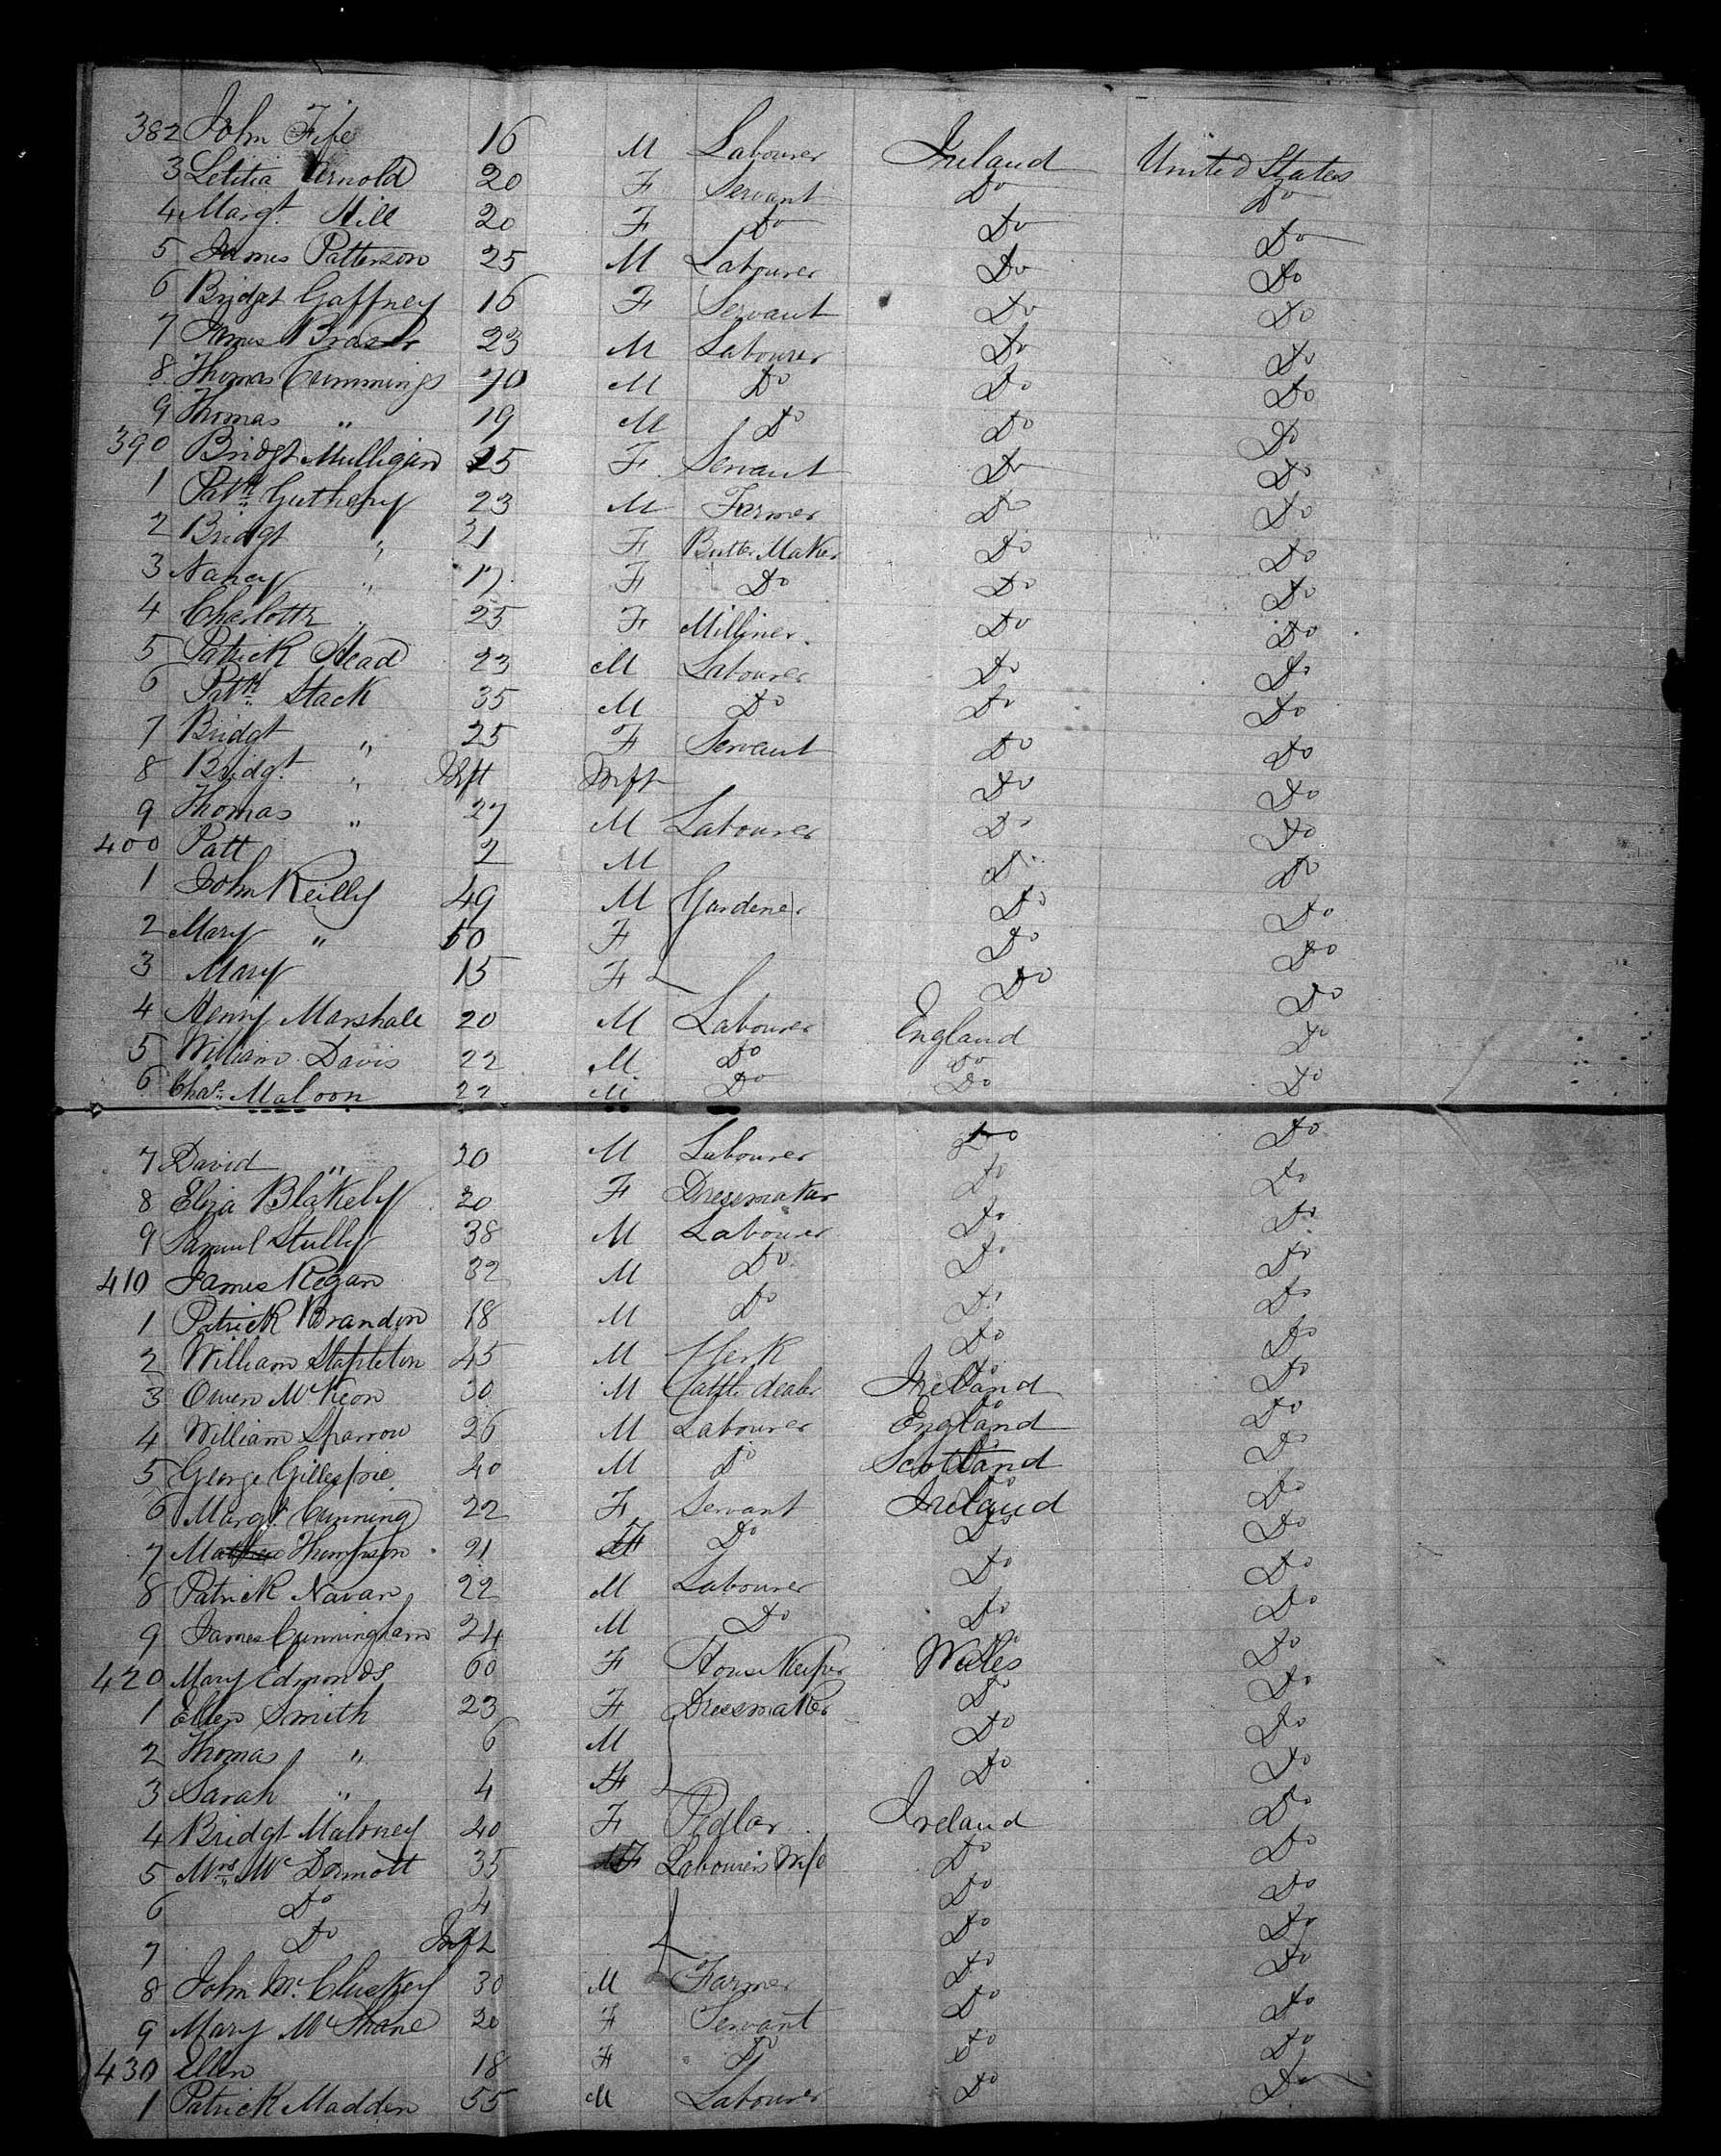 382 John Fife 16 M Labourer Ireland United States
3 Letitia Arnold 20 F Servant Do Do
4 Margt. Hill 20 F Do Do Do
5 James Patterson 25 M Labourer Do Do
6 Bridgt Gaffney 16 F Servant Do Do
7 James 23 M Labourer Do Do
8 Thomas Cummings 70 M Do Do Do
9 Thomas " 19 M Do Do Do
390 Bridgt Mulligan 25 F Servant Do Do
1 Patk 23 M Farmer Do Do
2 Bridgt " 21 F Butter Maker Do Do
3 Nancy " 17 F Do Do Do
4 Charlotte " 25 F Milliner Do Do
5 Patrick Head 23 M Labourer Do Do
6 Patk Stack 35 M Do Do Do
7 Bridgt " 25 F Servant Do Do
8 Bridgt. " Inft Inft Do Do
9 Thomas " 27 M Labourer Do Do
400 Patt " 2 M Do Do
1 John Reilly 49 M Gardener Do Do
2 Mary " 50 F Do Do
3 Mary 15 F Do Do
4 Henry Marshall 20 M Labourer England Do
5 William Davis 22 M Do Do Do
6 Chas. Maloon 22 M Do Do Do
7 David " 20 M Labourer Do Do
8 Eliza Blakely 20 F Dressmaker Do Do
9 Samuel Stully 38 M Labourer Do Do
410 James Regan 32 M Do Do Do
1 Patrick Brandon 18 M Do Do Do
2 William Stapleton 45 M Clerk Do Do
3 Owen McKeon 30 M Cattle dealer Ireland Do
4 William Sparrow 26 M Labourer England Do
5 George Gillespie 40 M Do Scotland Do
6 Margt. Cunning 22 F Servant Ireland Do
7 Thompson 21 F Do Do Do
8 Patrick Navan 22 M Labourer Do Do
9 James Cunningham 24 M Do Do Do
420 Mary Edmonds 60 F House Keeper Wales Do
1 Ellen Smith 23 F Dressmaker Do Do
2 Thomas " 6 M Do Do
3 Sarah " 4 F Do Do
4 Bridgt Maloney 40 F Pedlar Ireland Do
5 Mrs. McDermott 35 F Labourers Wife Do Do
6 Do 4 Do Do
7 Do Inft Do Do
8 John McCluskey 30 M Farmer Do Do
9 Mary McShane 20 F Servant Do Do
430 Ellen 18 F Do Do Do
1 Patrick Madden 55 M Labourer Do Do